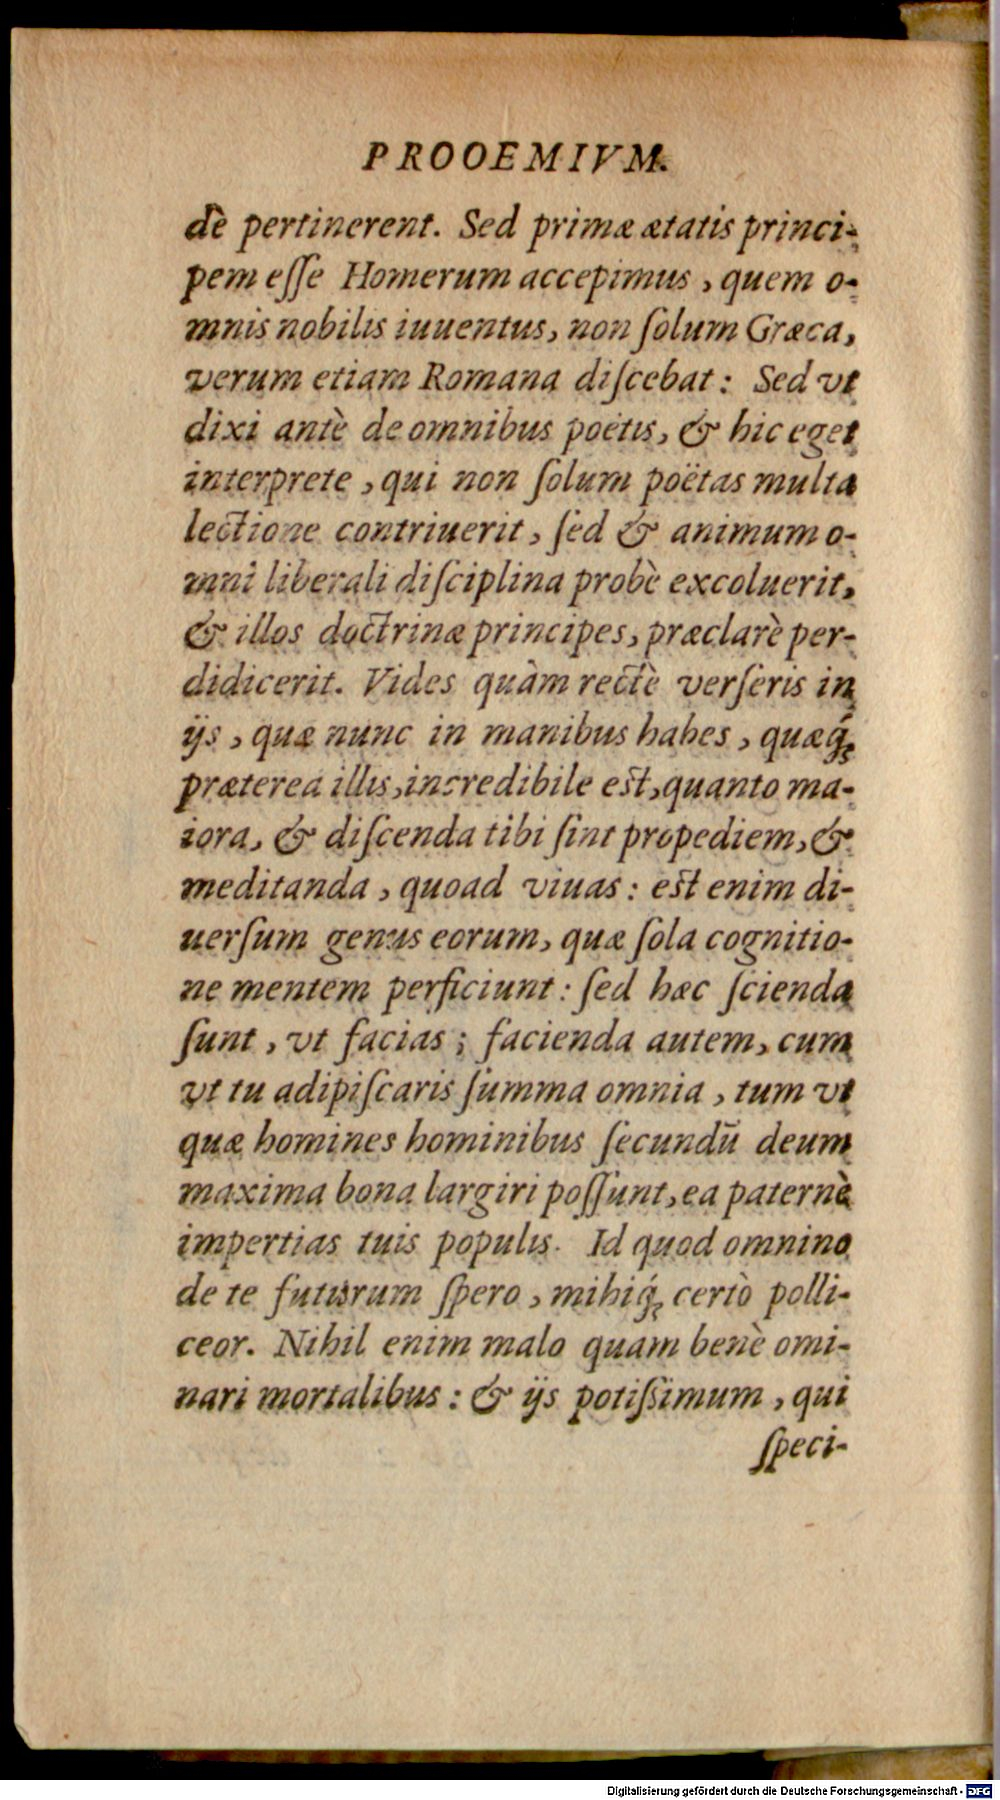 PROOEMIVM.
dè pertinerent. Sed primæ ætatis princi-
pem eſſe Homerum accepimus, quem o-
mnis nobilis iuuentus, non ſolum Græca,
verum etiam Romana diſcebat: Sed vt
dixi antè de omnibus poëtis, & hic eget
interprete, qui non ſolum poëtas multa
lectione contriuerit, ſed & animum o-
mni liberali diſciplina probè excoluerit,
& illos doctrinæ principes, præclarè per-
didicerit. Vides quàm rectè verſeris in
ijs, quæ nunc in manibus habes, quæq́;
præterea illis, incredibile est, quanto ma-
iora, & diſcenda tibi ſint propediem, &
meditanda, quoad viuas: est enim di-
uerſum genus eorum, quæ ſola cognitio-
ne mentem perficiunt: ſed hæc ſcienda
ſunt, vt facias; facienda autem, cum
vt tu adipiſcaris ſumma omnia, tum vt
quæ homines hominibus ſecundū deum
maxima bona largiri poſſunt, ea paternè
impertias tuis populis. Id quod omnino
de te futurum ſpero, mihiq́; certò polli-
ceor. Nihil enim malo quam benè omi-
nari mortalibus: & ijs potiſsimum, qui
ſpeci-
Digitalisierung gefördert durch die Deutsche Forschungsgemeinschaft - DFG